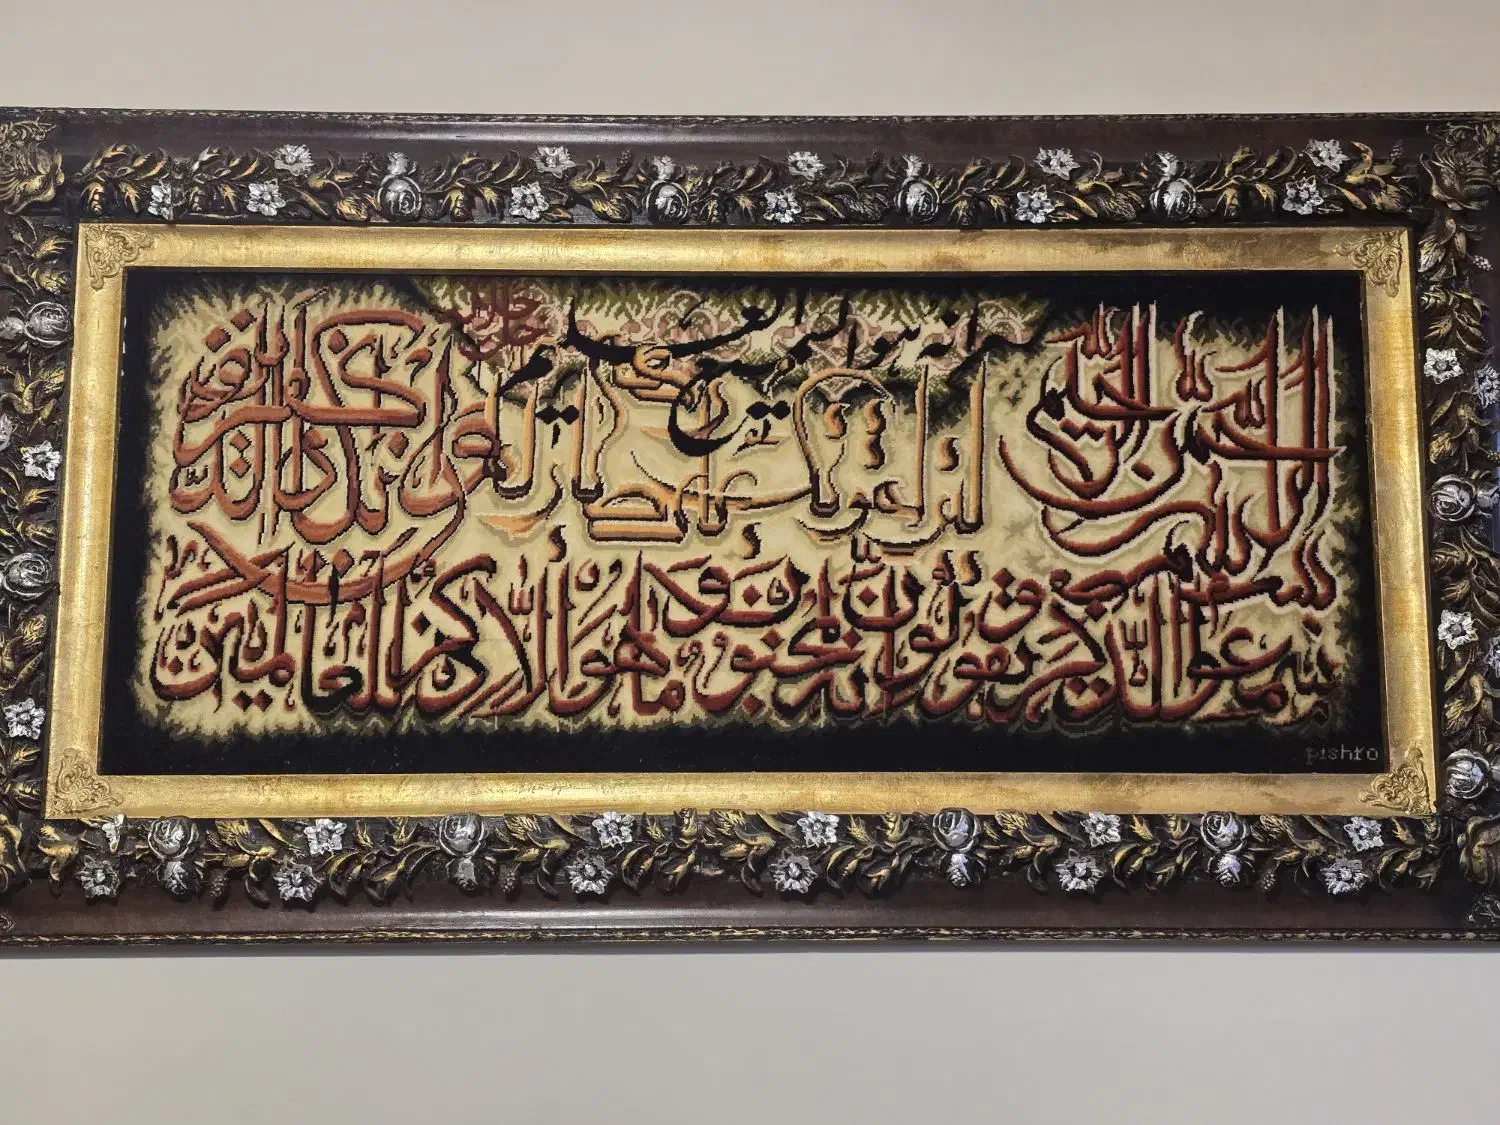 بسم الله الرحمن الرحيم
وإن يكاد الذين كفروا ليزلقونك بأبصارهم
لما سمعوا الذكر ويقولون إنه لمجنون وما هو إلا ذكر للعالمين
إنه هو السميع العليم
pishro